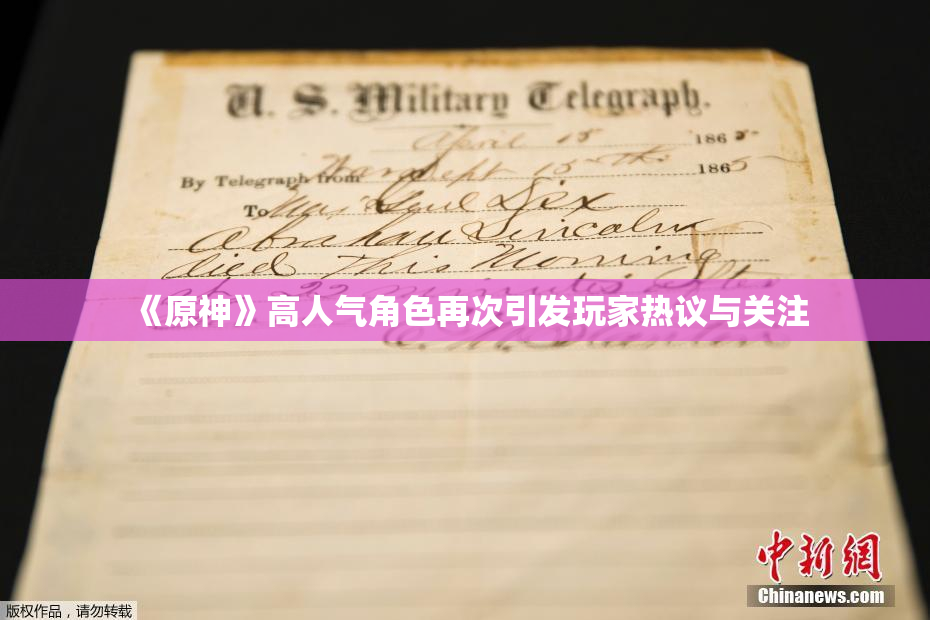 U. S. Military Telegraph.
April 15 1865
By Telegraph from War Dept 15th 1865
To Maj Genl Dix
Abraham Lincoln
died this Morning
at 22 minutes after
《原神》高人气角色再次引发玩家热议与关注
中新网
Chinanews.com
版权作品，请勿转载